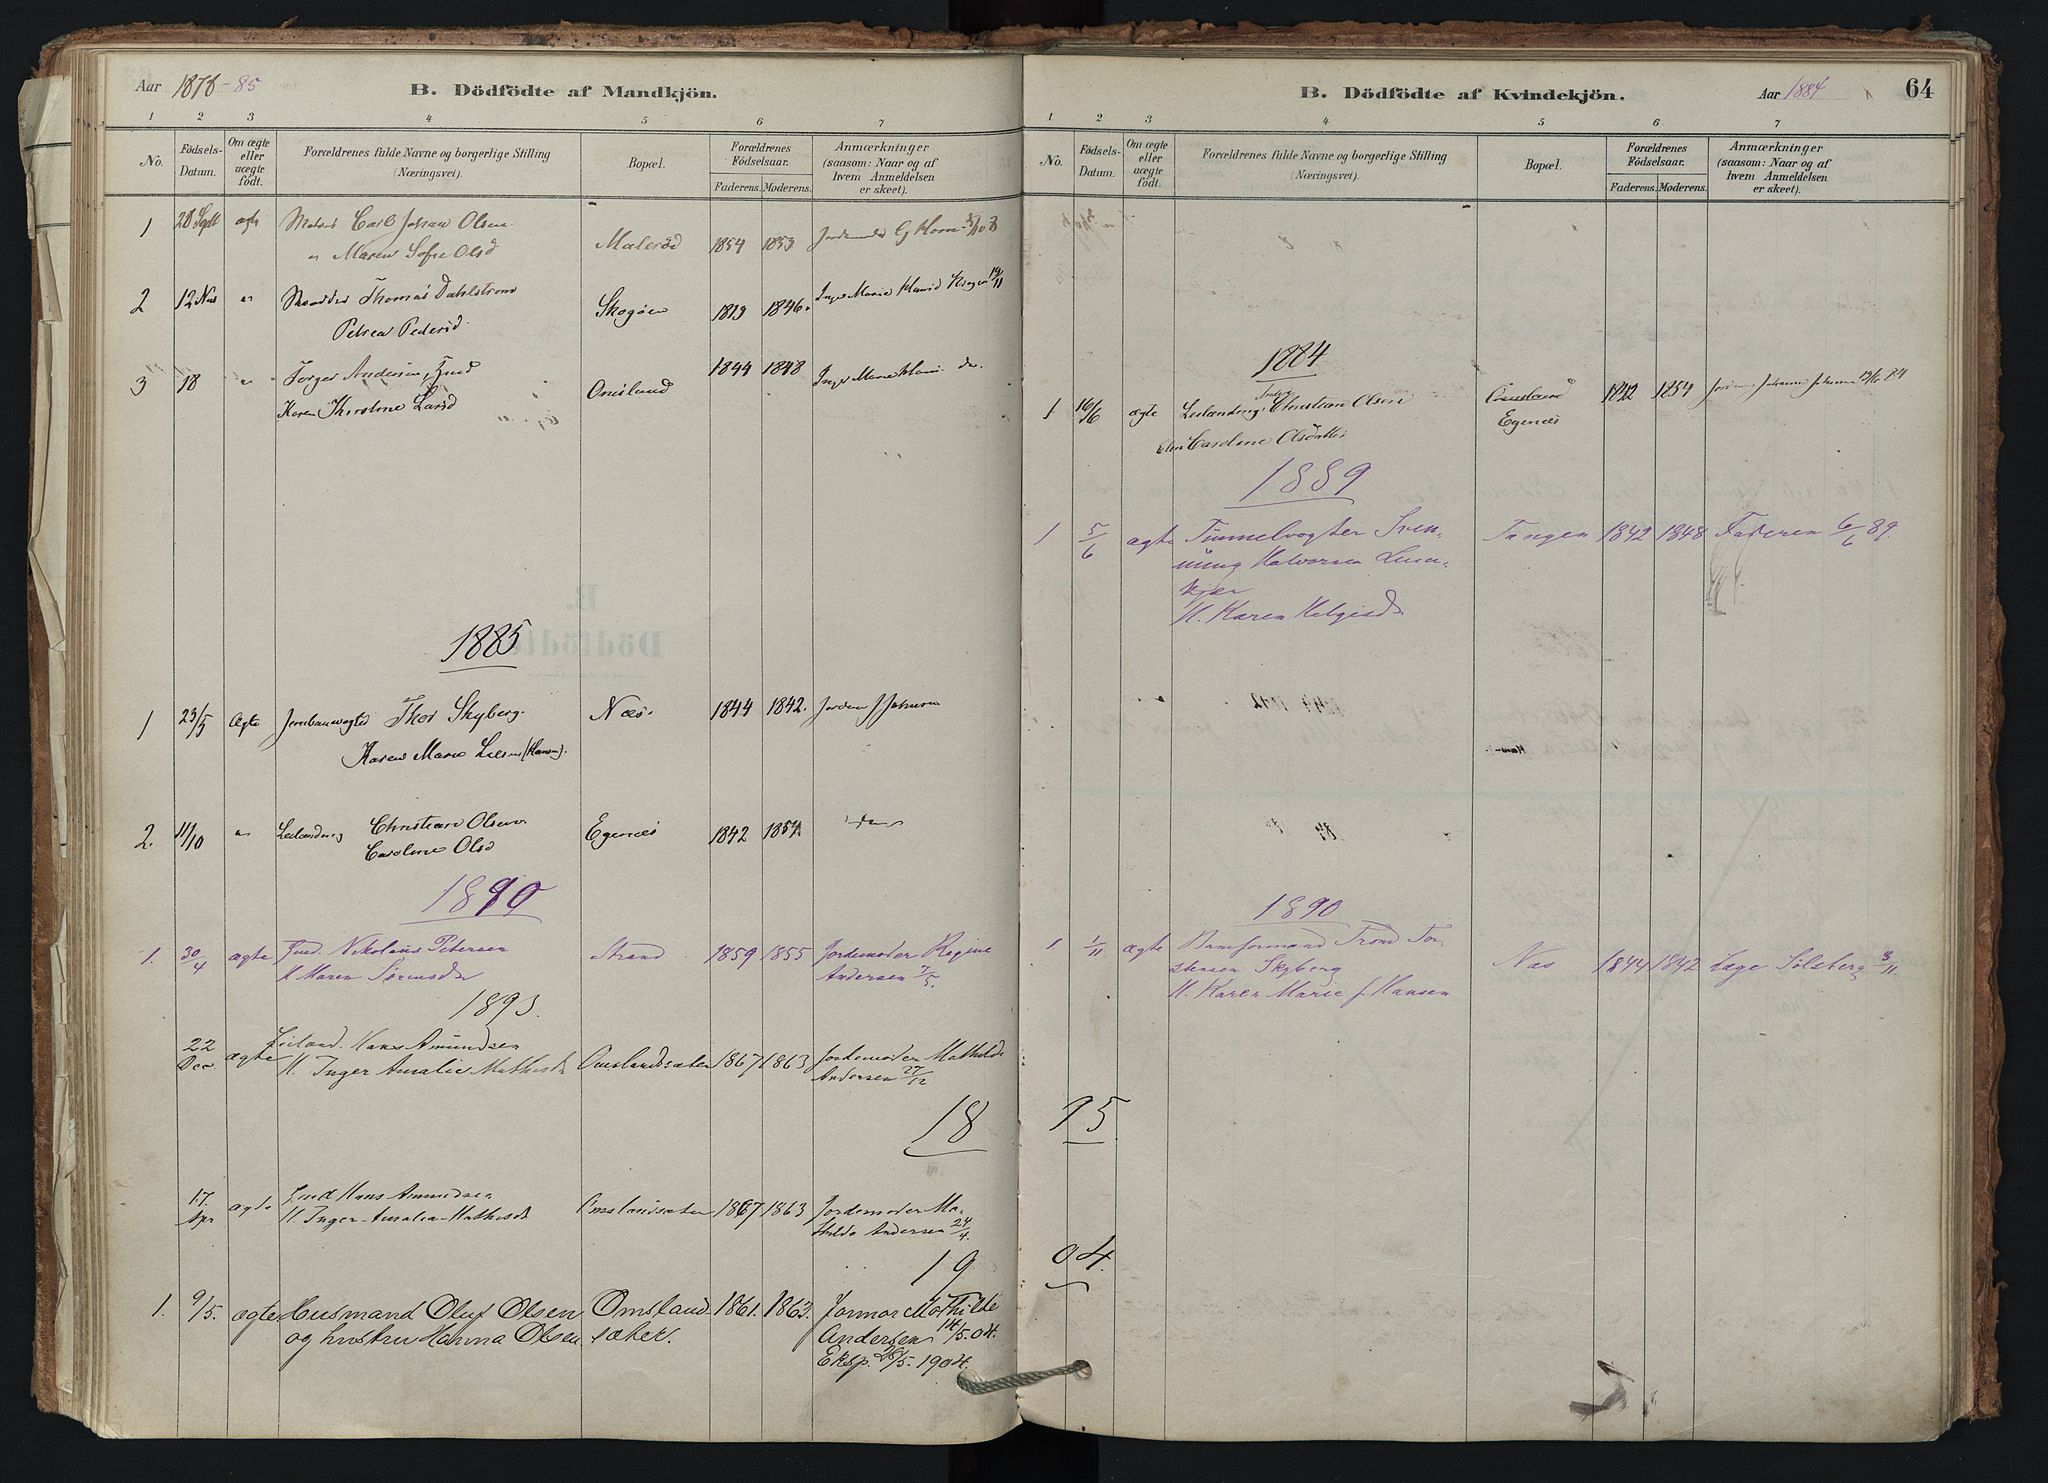 Aar 1878-85
B. Dödfödte af Mandkjön.
1 2 3 4 5 6 7
No.
Födsels-Datum.
Om ægte eller uægte födt.
Forældrenes fulde Navne og borgerlige Stilling
(Næringsvei).
Bopæl.
Forældrenes Födselsaar.
Faderens. Moderens.
Anmærkninger
(saasom: Naar og af
hvem Anmeldelsen
er skeet).
1 28 Sept ægte Carl Johan Olsen 1854 1853
Maren Sofie Olsd
2 12 Nov " Thomas Dahlstrom Skogöen 1819 1846. Inger Marie 19/11
Petrea Pedersd.
3 18 " Torger Andersen, Ind Omsland 1844 1848 Inger Marie do.
Karen Larsd
1885
1 23/5 Ægte Thor Skyberg. Næs. 1844 1842. Jordem J Johnsen
Karen Marie (Hansen).
2. 11/10 " Leilænding Christian Olsen Egenæs 1842 1854
Caroline Olsd
1890
1. 30/4 ægte Ind. Nikolaus Petersen Strand 1859 1855 Jordemoder Regine
H. Maren Sørensd Andersen 7/5.
1893.
22 Dec ægte Hans Amundsen Omslandsæter 1867 1863 Jordemoder Mathilde
H. Inger Amalie Mathisd Andersen 27/12
18
17 Apr ægte Ind Hans Amundsen Omslandsæter 1867 1863 Jordemoder Ma-
H. Inger Amalie Mathisd thilde Andersen 24/4.
19
1. 9/5. ægte Husmand Oluf Olsen Omsland 1861. 1863. Jormor Mathilde
og hustru Hanna Olsen sæter. Andersen 14/5. 04.
Eksp. 26/5. 1904.
B. Dödfödte af Kvindekjön.
Aar 1884
64
1 2 3 4 5 6 7
No.
Födsels-Datum.
Om ægte eller uægte födt.
Forældrenes fulde Navne og borgerlige Stilling
(Næringsvei).
Bopæl.
Forældrenes Födselsaar.
Faderens. Moderens.
Anmærkninger
(saasom: Naar og af
hvem Anmeldelsen
er skeet).
1884.
1 16/6 ægte Christian Olsen Omsland 1842 1854
Caroline Olsdatter Egenæs
1889
1 5/6 ægte Tunnelvogter Sven- Tangen 1842 1848 Faderen 6/6 89.
nung Halvorsen
kjær
H. Karen Helgesd
1890
1 1/11 ægte Baneformand Trond Tor- Næs 1844 1842 Læge Sølsberg 3/11
stensen Skyberg
H. Karen Marie f. Hansen
95
04.